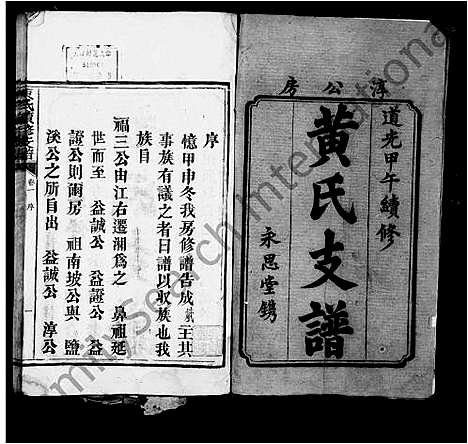 淳公房
道光甲午續修
黃氏支譜
永思堂鐫
序
憶甲申冬我房修譜告成 王其
事族有議之者曰譜以収族也我
族目
福三公由江右遷湖爲之 鼻祖延
世而至 益誠公 益證公 益
證公則兩房 祖南坡公與 鹽
溪公之所自出 益誠公 淳公
卷一 序
一
FamilySearch International